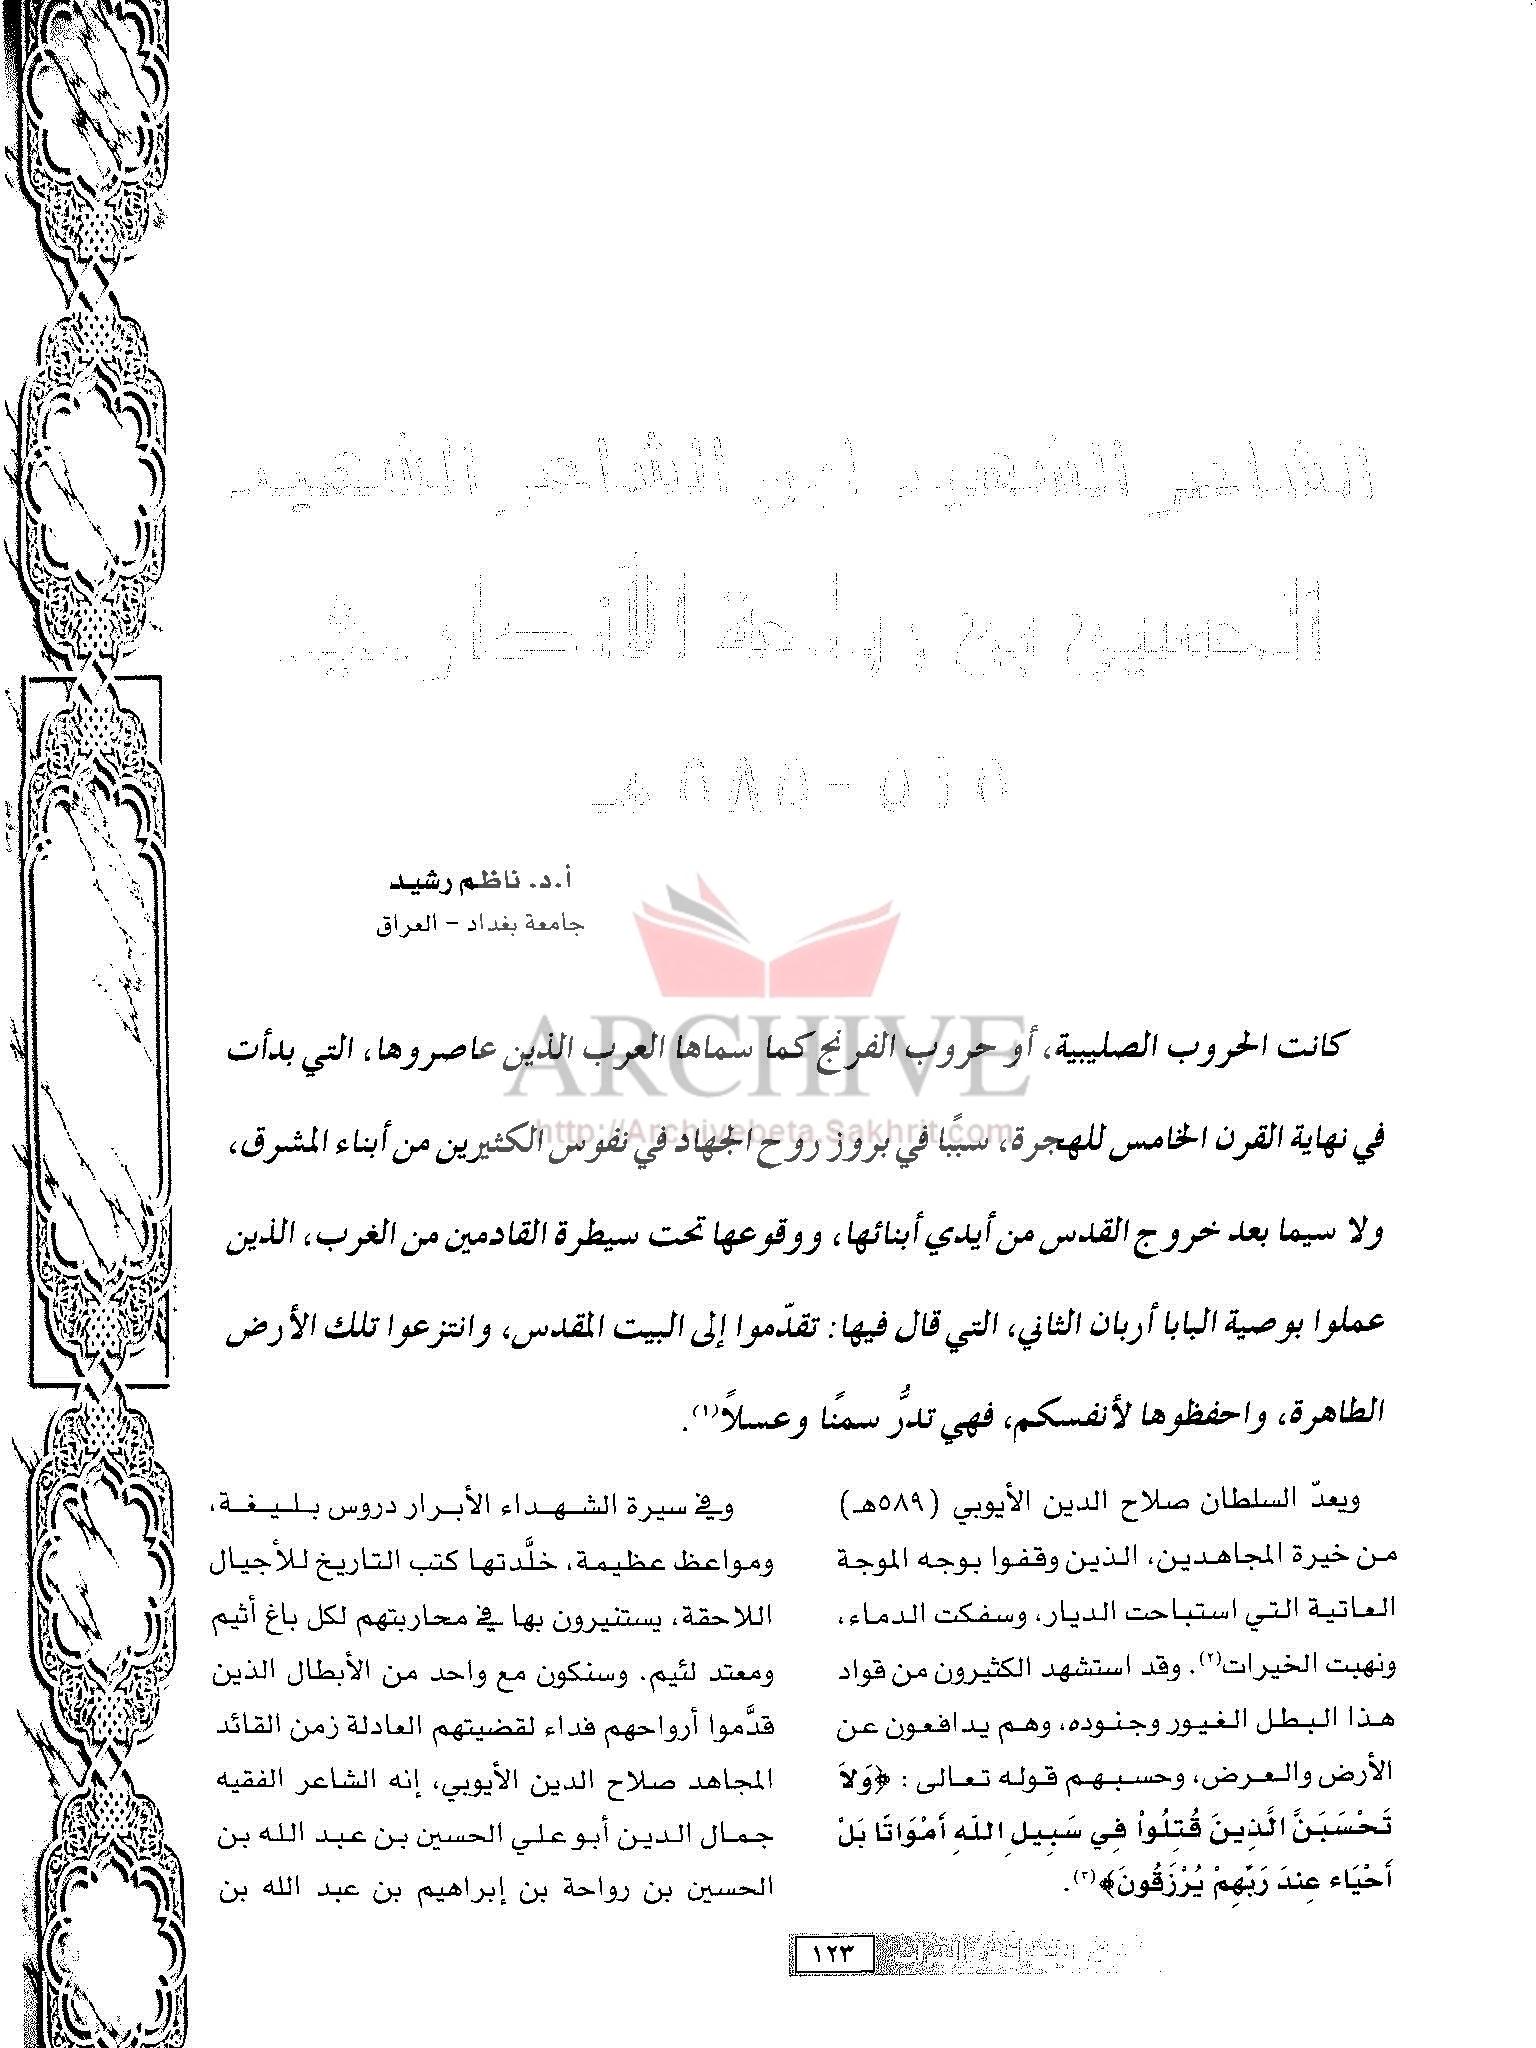 الشاعر الشهيد ابن الشاعر الشهيد
الحسين بن رواحة الأنصاري
٥١٥ - ٥٨٥ هـ
أ.د. ناظم رشيد
جامعة بغداد - العراق
ARCHIVE
http://Archivebeta.Sakhrit.com
كانت الحروب الصليبية، أو حروب الفرنج كما سماها العرب الذين عاصروها، التي بدأت
في نهاية القرن الخامس للهجرة، سببًا في بروز روح الجهاد في نفوس الكثيرين من أبناء المشرق،
ولا سيما بعد خروج القدس من أيدي أبنائها، ووقوعها تحت سيطرة القادمين من الغرب، الذين
عملوا بوصية البابا أربان الثاني، التي قال فيها: تقدّموا إلى البيت المقدس، وانتزعوا تلك الأرض
الطاهرة، واحفظوها لأنفسكم، فهي تدرُّ سمنًا وعسلاً(١).
ويعدّ السلطان صلاح الدين الأيوبي (٥٨٩هـ)
من خيرة المجاهدين، الذين وقفوا بوجه الموجة
العاتية التي استباحت الديار، وسفكت الدماء،
ونهبت الخيرات(٢). وقد استشهد الكثيرون من قواد
هذا البطل الغيور وجنوده، وهم يدافعون عن
الأرض والعرض، وحسبهم قوله تعالى: ﴿وَلاَ
تَحْسَبَنَّ الَّذِينَ قُتِلُواْ فِي سَبِيلِ اللّهِ أَمْوَاتًا بَلْ
أَحْيَاء عِندَ رَبِّهِمْ يُرْزَقُونَ﴾(٣).
وفي سيرة الشهداء الأبرار دروس بليغة،
ومواعظ عظيمة، خلَّدتها كتب التاريخ للأجيال
اللاحقة، يستنيرون بها في محاربتهم لكل باغ أثيم
ومعتد لئيم. وسنكون مع واحد من الأبطال الذين
قدَّموا أرواحهم فداء لقضيتهم العادلة زمن القائد
المجاهد صلاح الدين الأيوبي، إنه الشاعر الفقيه
جمال الدين أبو علي الحسين بن عبد الله بن
الحسين بن رواحة بن إبراهيم بن عبد الله بن
١٢٣